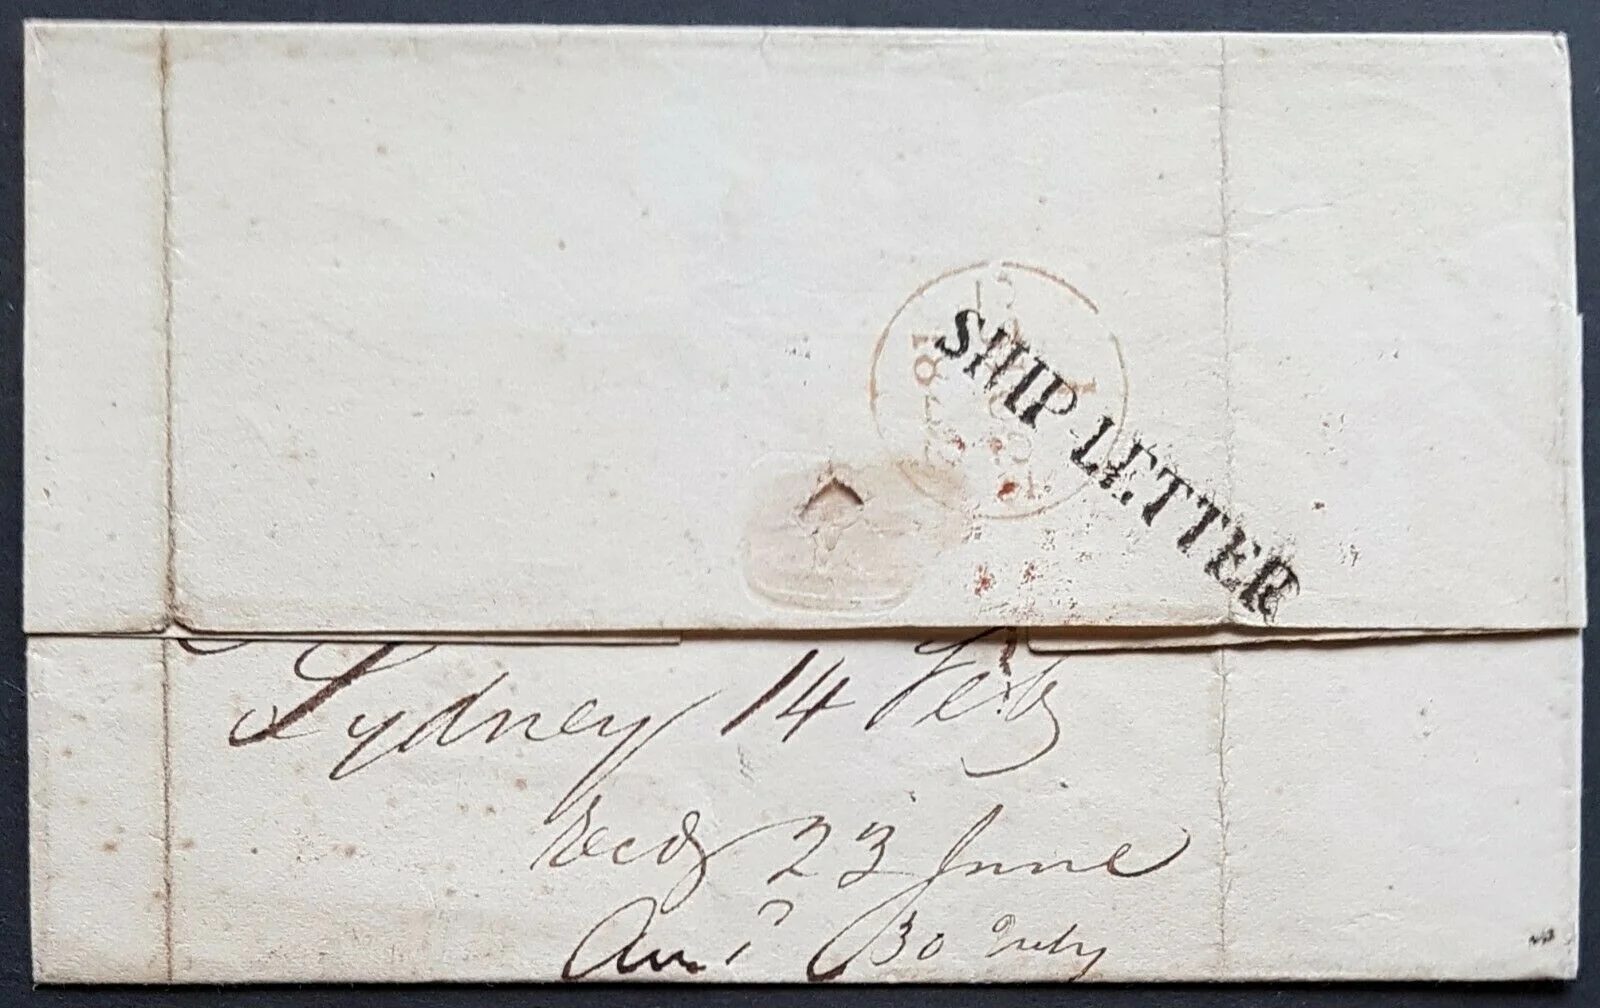 SHIP-LETTER
Sydney 14 Feby
Recd 23 June
30 July